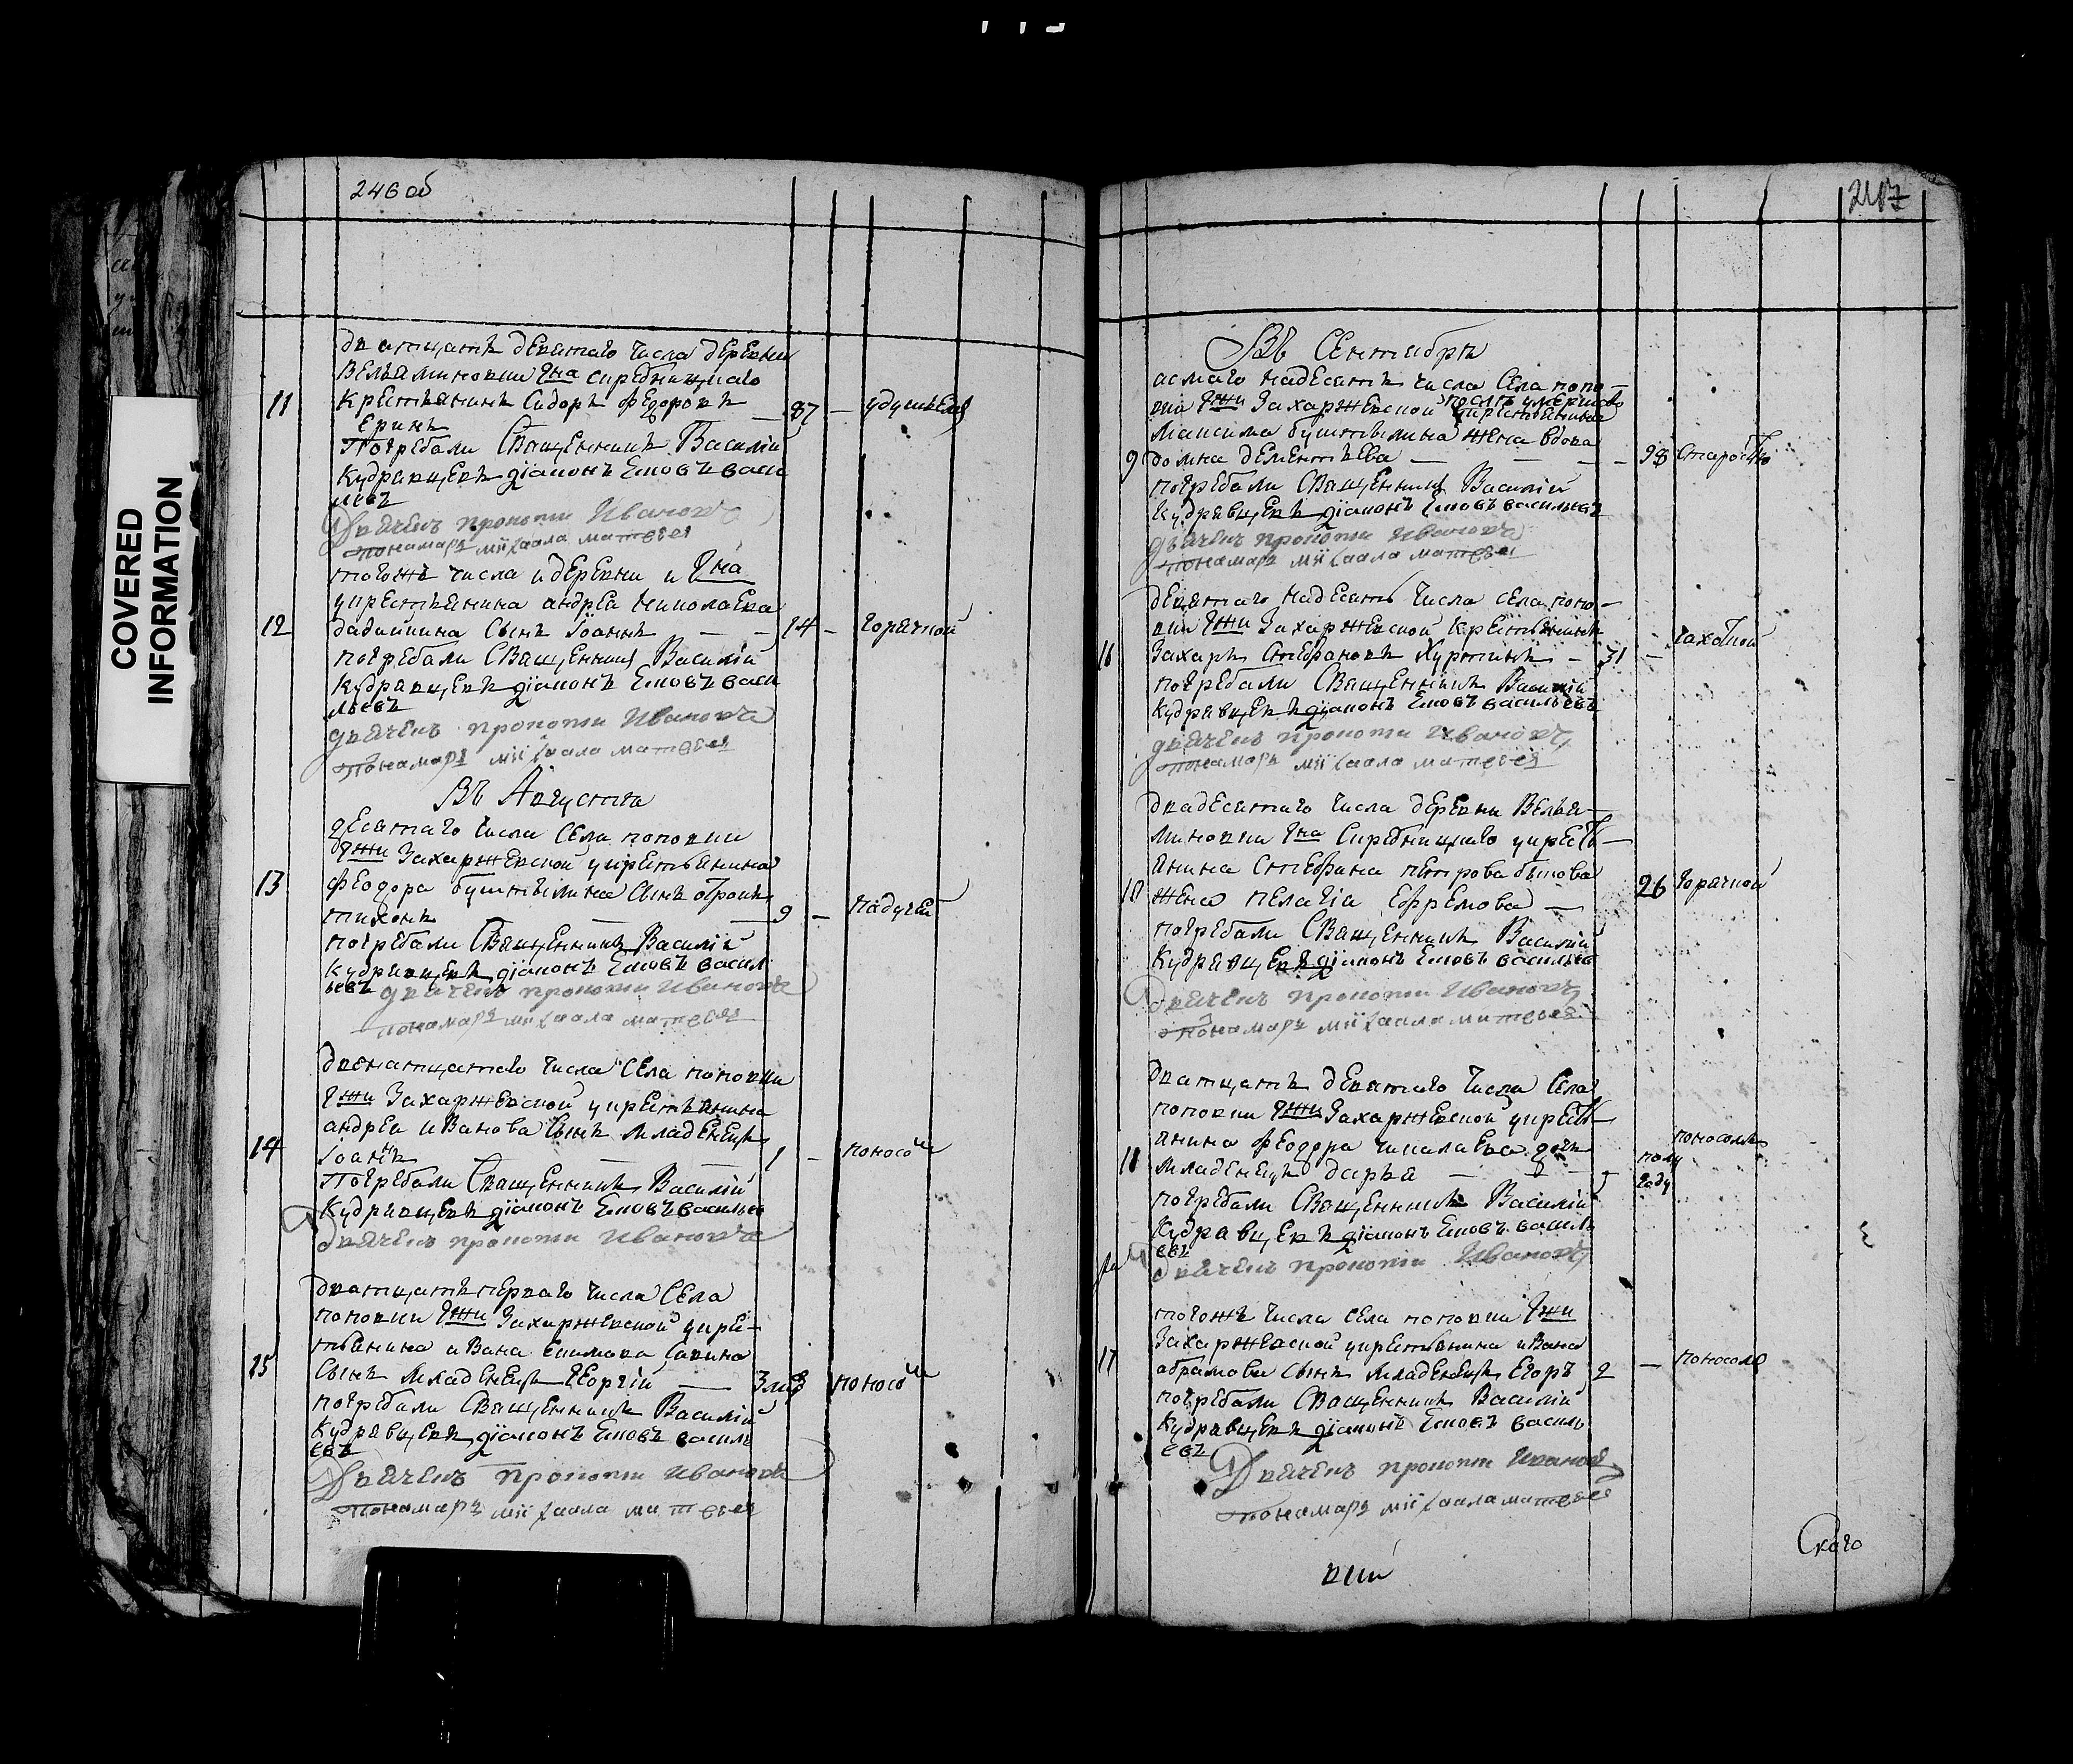 246 об
дватцать деватаго числа деревни
Вельяминовки гна скребницкаго
11 крестьянинъ Сидоръ Федоровъ 87 — удушьемъ
Еринъ
Погребали Священникъ Василій
Кудрявцевъ діаконъ Іаковъ васи
льевъ
Дьячекъ прокопи Ивановъ
пономарь міхаала матвеев
тогожъ числа и деревни и гна
крестьянина андрея николаева
12 дадашкина Сынъ Іоаннъ — — 14 — горячкой
погребали Священникъ Василій
Кудрявцевъ діаконъ Іаковъ васи
льевъ
дьячекъ прокопи Ивановъ
пономарь міхаала матвеев
Въ Августе
десятаго числа Села поповки
гжи Захаржевской крестьянина
13 Феодора буштылина Сынъ отрокъ
тихонъ — — 9 — падучей
погребали Священникъ Василій
Кудрявцевъ діаконъ Іаковъ васил
ьевъ дьячекъ прокопи Ивановъ
пономарь міхаала матвеев
двенатцатого числа Села поповки
гжи Захаржевской крестьянина
андрея иванова Сынъ младенецъ
14 Іоаннъ — — 1 — поносомъ
Погребали Священникъ Василій
Кудрявцевъ діаконъ Іаковъ васильев
Дьячекъ прокопи Ивановъ
дватцать перваго числа Села
поповки гжи Захаржевской крес-
тьянина ивана
15 Сынъ младенецъ Георгій — 3 поносомъ
погребали Священникъ Василій
Кудрявцевъ діаконъ Іаковъ василь
евъ
Дьячекъ прокопи Ивановъ
пономарь міхаала матвеев
247
Въ Сентябре
асмаго надесять числа Села попо-
вки гжи Захаржевской после умершаго
крестьянина
Максима буштылина жена вдова
9 домна дементьева — — — 98 старостью
погребали Священникъ Василій
Кудрявцевъ діаконъ Іаковъ васильевъ
дьячекъ прокопи Ивановъ
пономарь міхаала матвеев
деватаго надесять числа села попо-
вки гжи Захаржевской крестьянинъ
16 Захаръ Стефановъ Хуртинъ — 31 — чахоткой
погребали Священникъ Василій
Кудрявцевъ діаконъ Іаковъ васильевъ
дьячекъ прокопи Ивановъ
пономарь міхаала матвеев
двадесятаго числа деревни Велья-
миновки гна Скребницкаго крест-
янина Стефана петрова быкова
10 жена пелагіа Ефремова — 26 горячкой
погребали Священникъ Василій
Кудрявцевъ діаконъ Іаковъ васильев
Дьячекъ прокопи Ивановъ
пономарь міхаала матвеев
дватцать деватаго числа Села
поповки гжи Захаржевской крест-
янина Феодора николаева дочь поносомъ
11 младенецъ дарья — — полу
году
погребали Священникъ Василій
Кудрявцевъ діаконъ Іаковъ василь
евъ
Дьячекъ прокопи Ивановъ
тогожъ числа села поповки гжи
Захаржевской крестьянина ивана
17 абрамова Сынъ младенецъ Егоръ 2 — поносомъ
погребали Священникъ Василій
Кудрявцевъ діаконъ Іаковъ василь
евъ
Дьячекъ прокопи Иванов
пономарь міхаала матвеев
Скаго
COVERED
INFORMATION